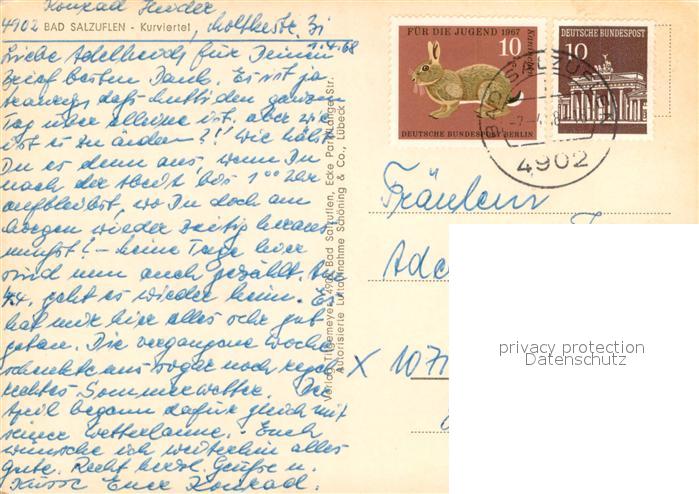 Konrad
4902 BAD SALZUFLEN - Kurviertel, Moltkestr. 31
1.4.68
Liebe Adelheid, für Deinen
Brief besten Dank. Es ist ja
traurig, daß Mutti den ganzen
Tag über alleine ist. aber wie
ist es zu ändern?!! Wie hälst
Du es denn aus, wenn Du
nach der Arbeit bis 1⁰⁰ Uhr
aufbleibst, wo Du doch am
Morgen wieder zeitig heraus
mußt! - Meine Tage hier
sind nun auch gezählt. Am
9.4. geht es wieder heim. Es
hat mir hier alles sehr gut
getan. Die vergangene Woche
schenkte uns sogar noch
rechtes Sommerwetter. Der
April begann dafür gleich mit
seiner Wetterlaune. - Euch
wünsche ich weiterhin alles
Gute. Recht herzl. Grüße u.
Küsse Euer Konrad.
Verlag Tilgemeyer, 4902 Bad Salzuflen, Ecke Park/Lange Str.
Autorisierte Luftaufnahme Schöning & Co., Lübeck
FÜR DIE JUGEND 1967
10
Kaninchen
DEUTSCHE BUNDESPOST BERLIN
10
DEUTSCHE BUNDESPOST
BAD SALZUFLEN
4902
Fräulein
Ade
X 1071
privacy protection
Datenschutz